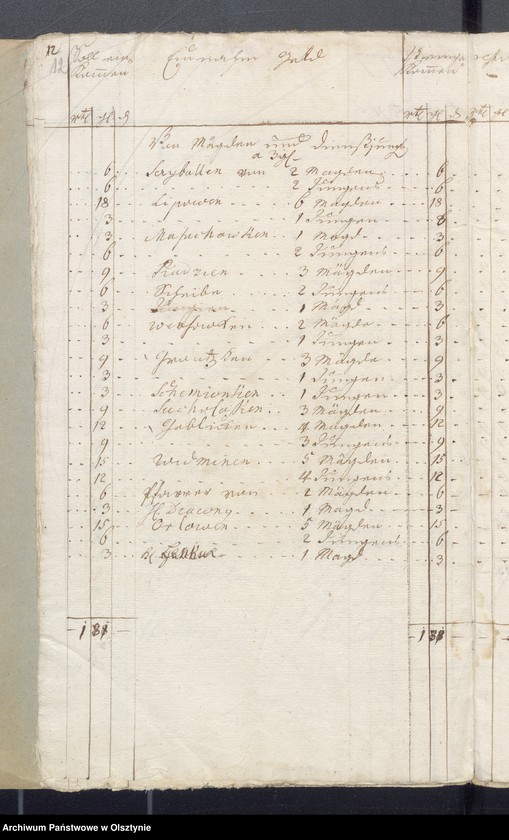 12
12
Soll ein- Einnahm Geld
kommen
rtl gl d rtl gl d rtl gl
Von Mägden und Dienstjungen
a 3 gl
6 Scayballen von 2 Mägden 6
6 2 Jungens 6
18 Lipowen 6 Mägden 18
3 1 Jungen
3 Masuchowken 1 Magd 3
6 2 Jungens 6
9 Radzien 3 Mägden 9
6 Scheibe 2 Jungens 6
3 1 Magd 3
6 2 Mägde 6
3 1 Jungen 3
9 3 Mägde 9
3 1 Jungen 3
3 Schemionken 1 Jungen 3
9 Sucholasken 3 Mägden 9
12 Gablicken 4 Mägden 12
9 3 Jungens 9
15 Widminen 5 Mägden 15
12 4 Jungens 12
6 Pfarrer von 2 Mägden 6
3 1 Magd 3
15 Orlowen 5 Mägden 15
6 2 Jungens 6
3 1 Magd 3
1 1
Archiwum Państwowe w Olsztynie